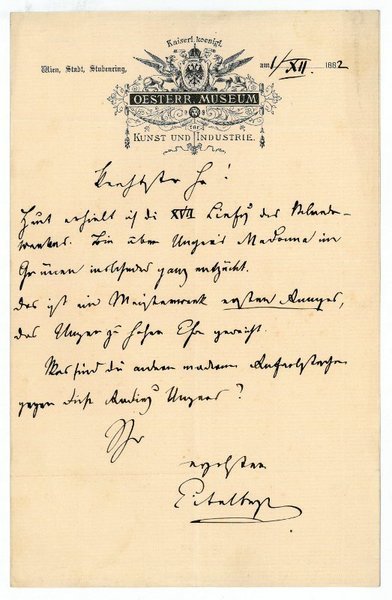 Kaiserl. koenigl.
Wien, Stadt, Stubenring,
am 1/XII. 1882
OESTERR. MUSEUM
FÜR
KUNST UND INDUSTRIE.
Verehrtester Hr!
Heut erhielt ich die XVII Liefg des Belvedere-
werkes. Bin über Ungers Madonna im
Grünen insbesondere ganz entzückt.
das ist ein Meisterwerk ersten Ranges,
das Unger zu hoher Ehre gereicht.
Was sind die anderen modernen
gegen diese Ungers?
Ihr
ergebenster
Eitelberger